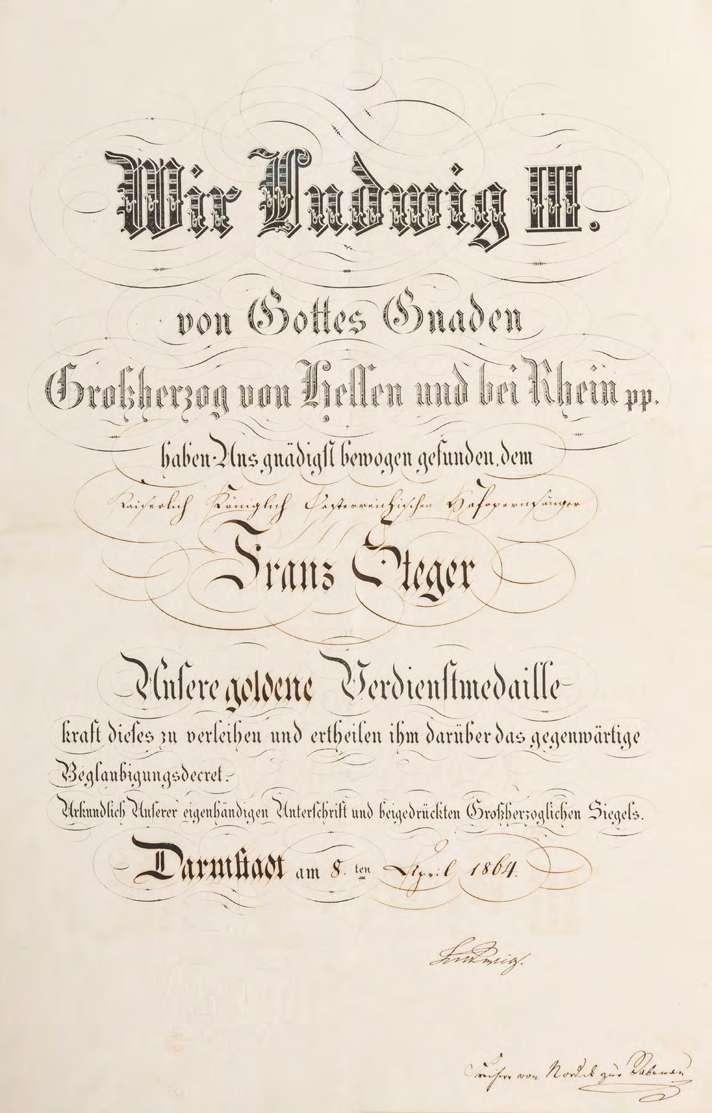 Wir Ludwig III.
von Gottes Gnaden
Großherzog von Hessen und bei Rhein pp.
haben Uns gnädigst bewogen gefunden, dem
Kaiserlich Königlich Oesterreichischen Hofopernsänger
Franz Steger
Unsere goldene Verdienstmedaille
kraft dieses zu verleihen und ertheilen ihm darüber das gegenwärtige
Beglaubigungsdecret.
Urkundlich Unserer eigenhändigen Unterschrift und beigedrückten Großherzoglichen Siegels.
Darmstadt am 8.ten April 1864.
Ludwig.
von Nordeck zur Rabenau